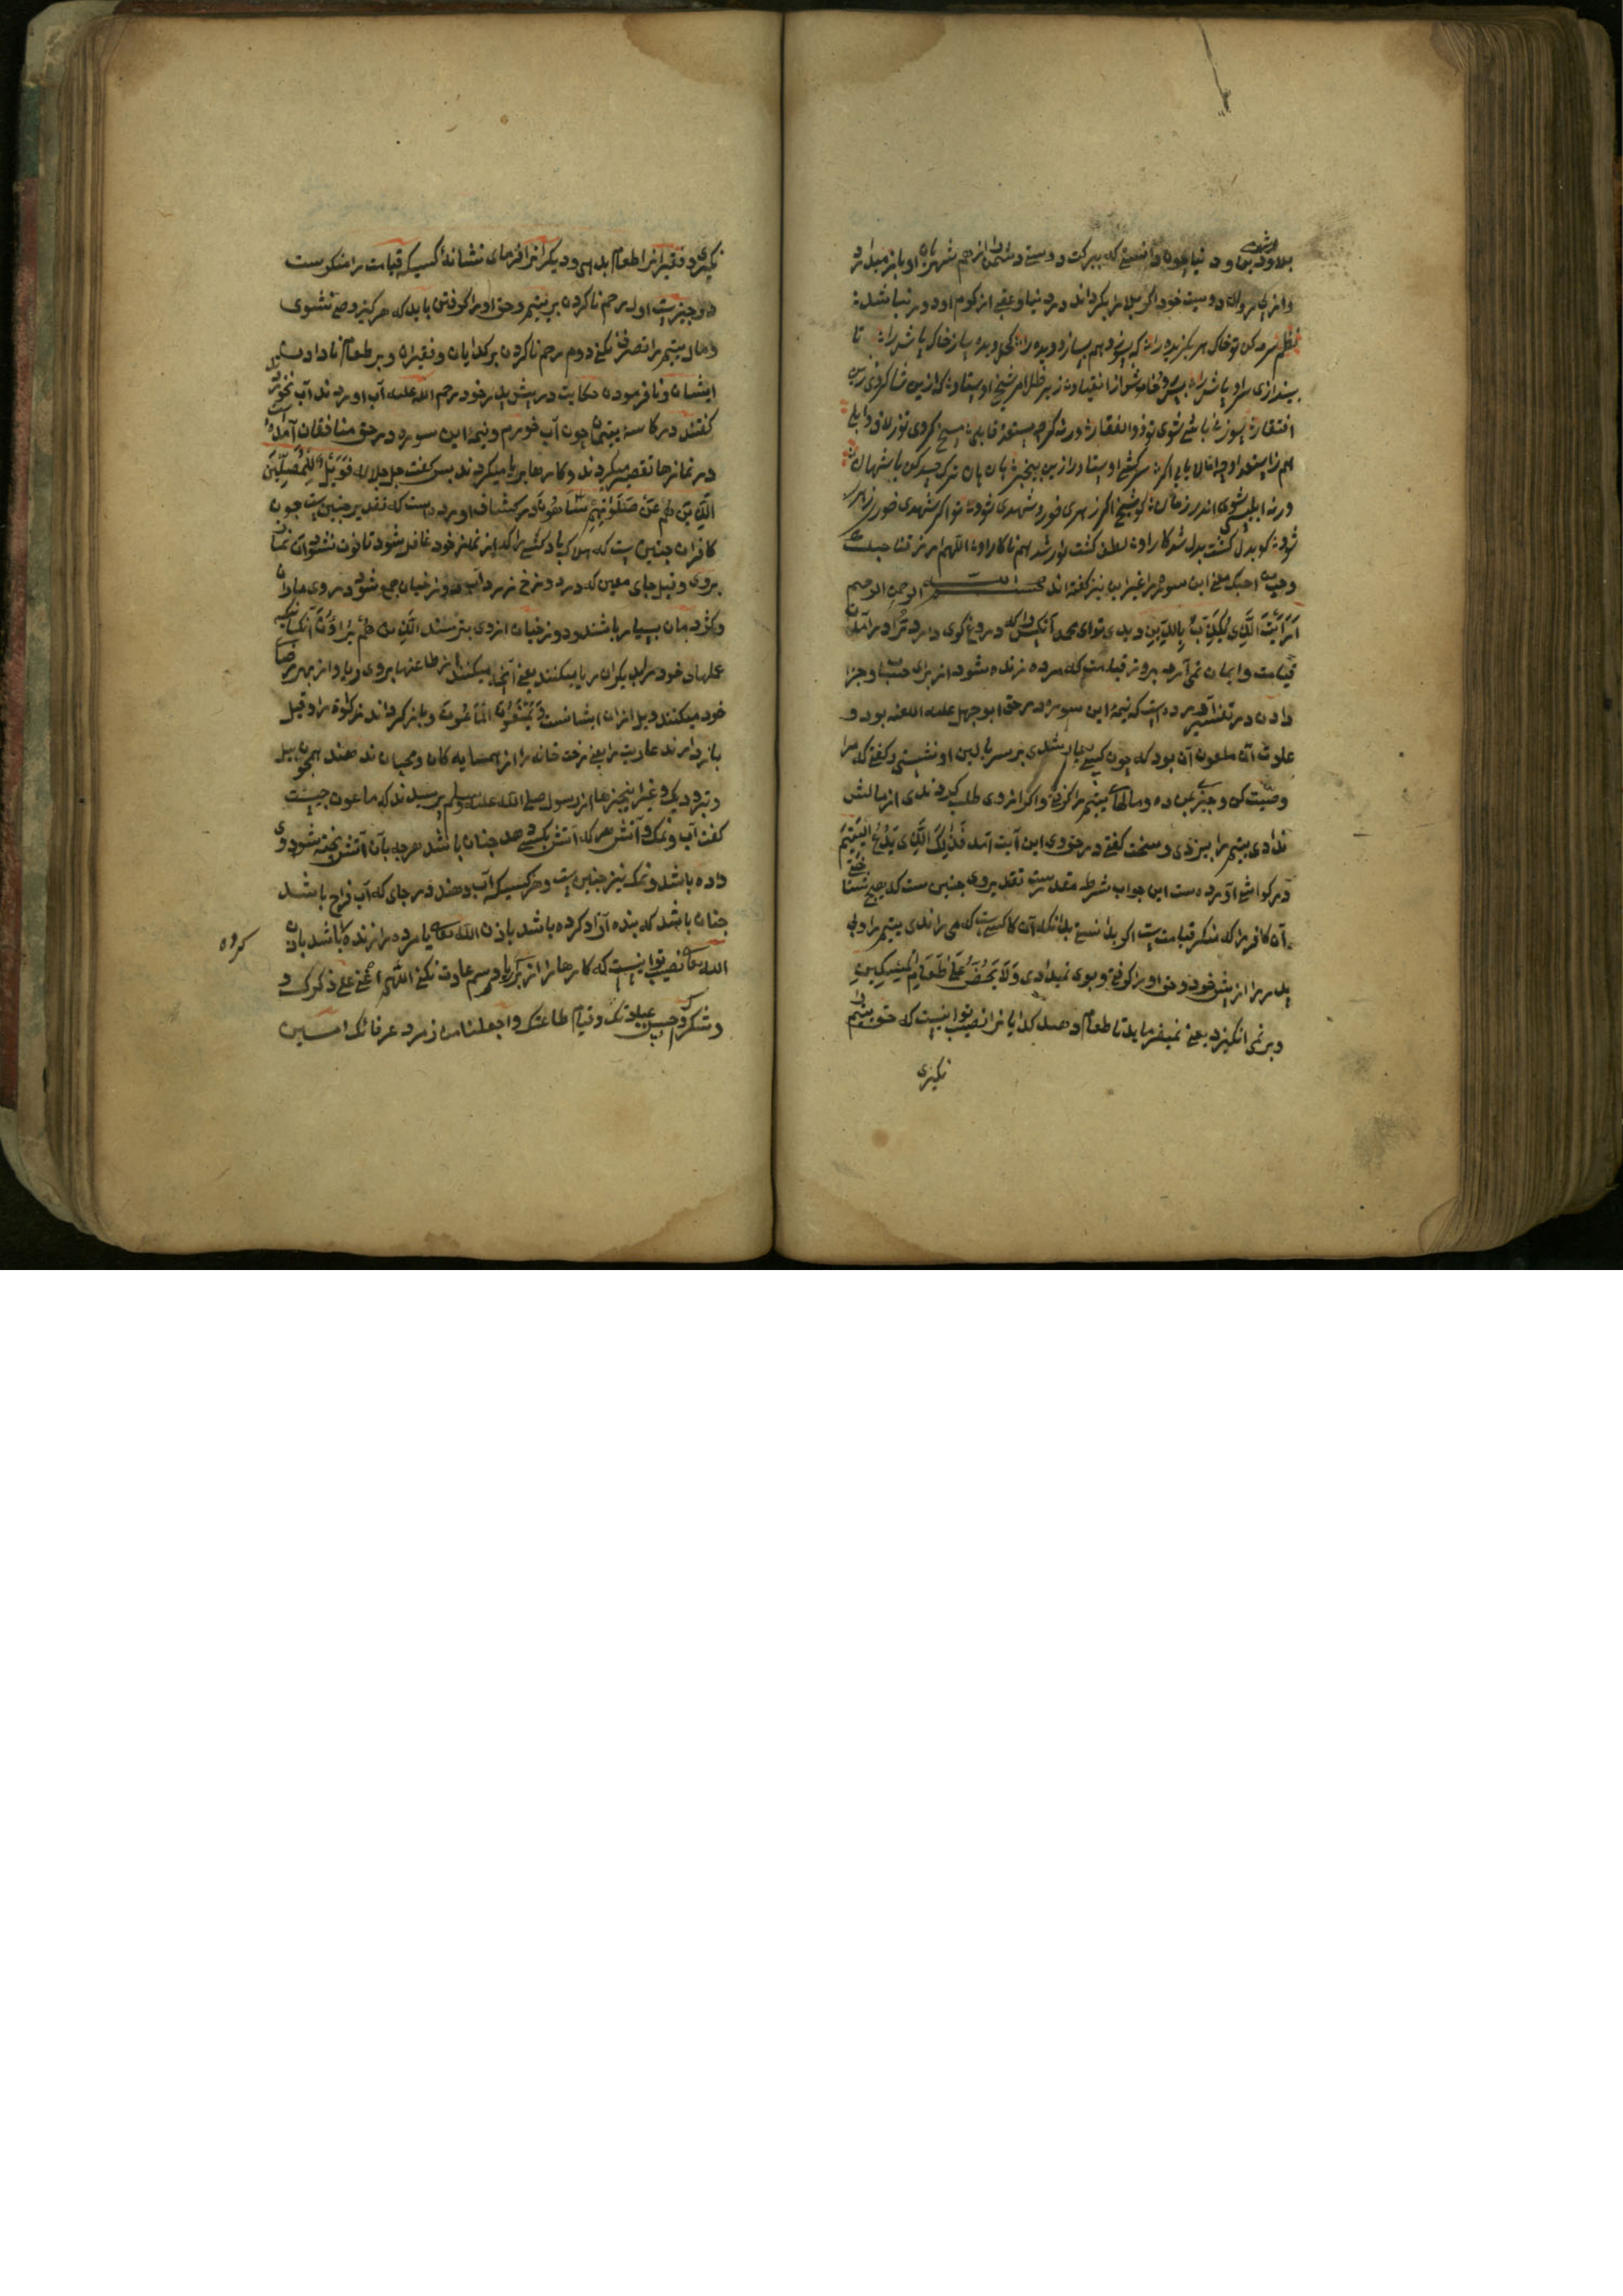 بلاو دین و دنیا چون دانستی که ببرکت دوستی دشمن از هم شهریان او باز میدارد
دوست خود اگر بلا را بگرداند در دنیا و عقبی از کرم او دور نباشد
نظم سرمه کن تو خاک هر بگزیده را که بسوزد هم بسازد دیده را کحل دیده ساز خاک پاش را تا
بیندازی سر اوباش را پس رو خاموش شو از انقیاد زیر ظل امر شیخ اوستاد
افتقار سوزن باشی شوی تو ذوالفقار ورنه گرچه مستعد و قابلی مسخ گردی تو ز لاف
هم ز استعداد وامانی اگر سر کشی ز اوستاد راز با خبر
شیخ اگر زهری خورد شهدی شود تو اگر شهدی خوری زهری
شود کو بدل گشت و بدل شد کار او لطف گشت و نور شد هر نار او اللهم ارزقنا حبک
وحب من احبک معنی این سوره را غیر این نیز گفته اند بسم الله الرحمن الرحیم
اَرَاَیْتَ الَّذِی یُکَذِّبُ بِالدِّینِ دیدی تو ای محمد آنکس را که دروغ گوی دارد ترا در آمدن
قیامت و ایمان نمی آرد بروز قیامت که مرده زنده میشود از برای حساب و جزا
دادن در تفسیر آورده است که نیمهٔ این سوره در حق ابوجهل علیه اللعنه بود و
عادت آن ملعون آن بود که چون کسی بیمار شدی بر سر بالین او نشستی و گفتی که مرا
وصیت کن و چیزی بمن ده و مالهای یتیم را گرفتی و اگر از وی طلب کردندی از مالش
ندادی یتیم را بیزدی و سخت گفتی در حق وی این آیت آمد فَذٰلِکَ الَّذِی یَدُعُّ الْیَتِیمَ
در کواشی آورده است این جواب شرط مقدر است تقدیر وی چنین است که
آن کافر را که منکر قیامت است اگر ندانستی بدانکه آن کس است که می راندی یتیم را
پدر را از پیش خود و حق او را گرفتی و بوی نمیدادی وَلَا یَحُضُّ عَلٰی طَعَامِ الْمِسْکِینِ
و بر نمی انگیزد یعنی نمیفرماید تا طعام دهند گدایانرا نصیب تو اینست که حق یتیم را
نگیری
نگیری و فقیرانرا طعام بدهی و دیگرانرا فرمای نشانهٔ کسیکه قیامت را منکرست
دو چیزست اول رحم ناکردن بر یتیم و حق او را گرفتن باید که هرگز وصی نشوی
و مال یتیم را تصرف نکنی دوم رحم ناکردن بر گدایان و فقیران و بر طعام نادادن
ایشان و نافرمودن حکایت در پیش پدر خود رحم الله علیه آب آوردند آب نخورد
گفتند در کاسهٔ یتیمان چون آب خورم و نیمهٔ این سوره در حق منافقان آمده است
در نمازها تقصیر میکردند و کارها بریا میکردند پس گفت جل جلاله فَوَیْلٌ لِلْمُصَلِّینَ
الَّذِینَ هُمْ عَنْ صَلَاتِهِمْ سَاهُونَ در کشاف آورده است که تقدیر چنین است چون
کافران چنین است که هلاک باد کسی را که از نماز خود غافل شود تا فوت نشود آن نماز
بروی و قیل جای معین که در دوزخ زرداب دوزخیان جمع شود در وی ماران
و کژدمان بسیار باشند و دوزخیان از وی بترسند الَّذِینَ هُمْ یُرَاؤُنَ آنکسانیکه
عملهای خود را بدیگران ریا میکنند یعنی آنچه میکنند از طاعتها بروی و ریا و از بهر رضای
خود میکنند ویل از آن ایشانست وَیَمْنَعُونَ الْمَاعُونَ و باز گرداند زکوة را و قیل
باز دارند عاریت را یعنی رخت خانه را از همسایه گان و محبان ندهند همچون بیل
و تبر و دیگ و غیر این چیزها از رسول صلی الله علیه وسلم پرسیدند که ماعون چیست
گفت آب و نمک و آتش هر که آتش بکسی دهد چنان باشد هرچه بآن آتش پخته شود وی
داده باشد و نمک نیز چنین است و هر کسیکه آب دهند در جای که آب فراخ باشد
چنان باشد که بنده آزاد کرده باشد باذن الله تعالی یا مرده را زنده باشد باذن
کرده
الله تعالی نصیب تو اینست که کارها را از برای ریا و رسم عادت نکنی اللهم اعنی علی ذکرک و
و شکرک وحسن عبادتک وقیام طاعتک واجعلنا من زمره عرفانک امین